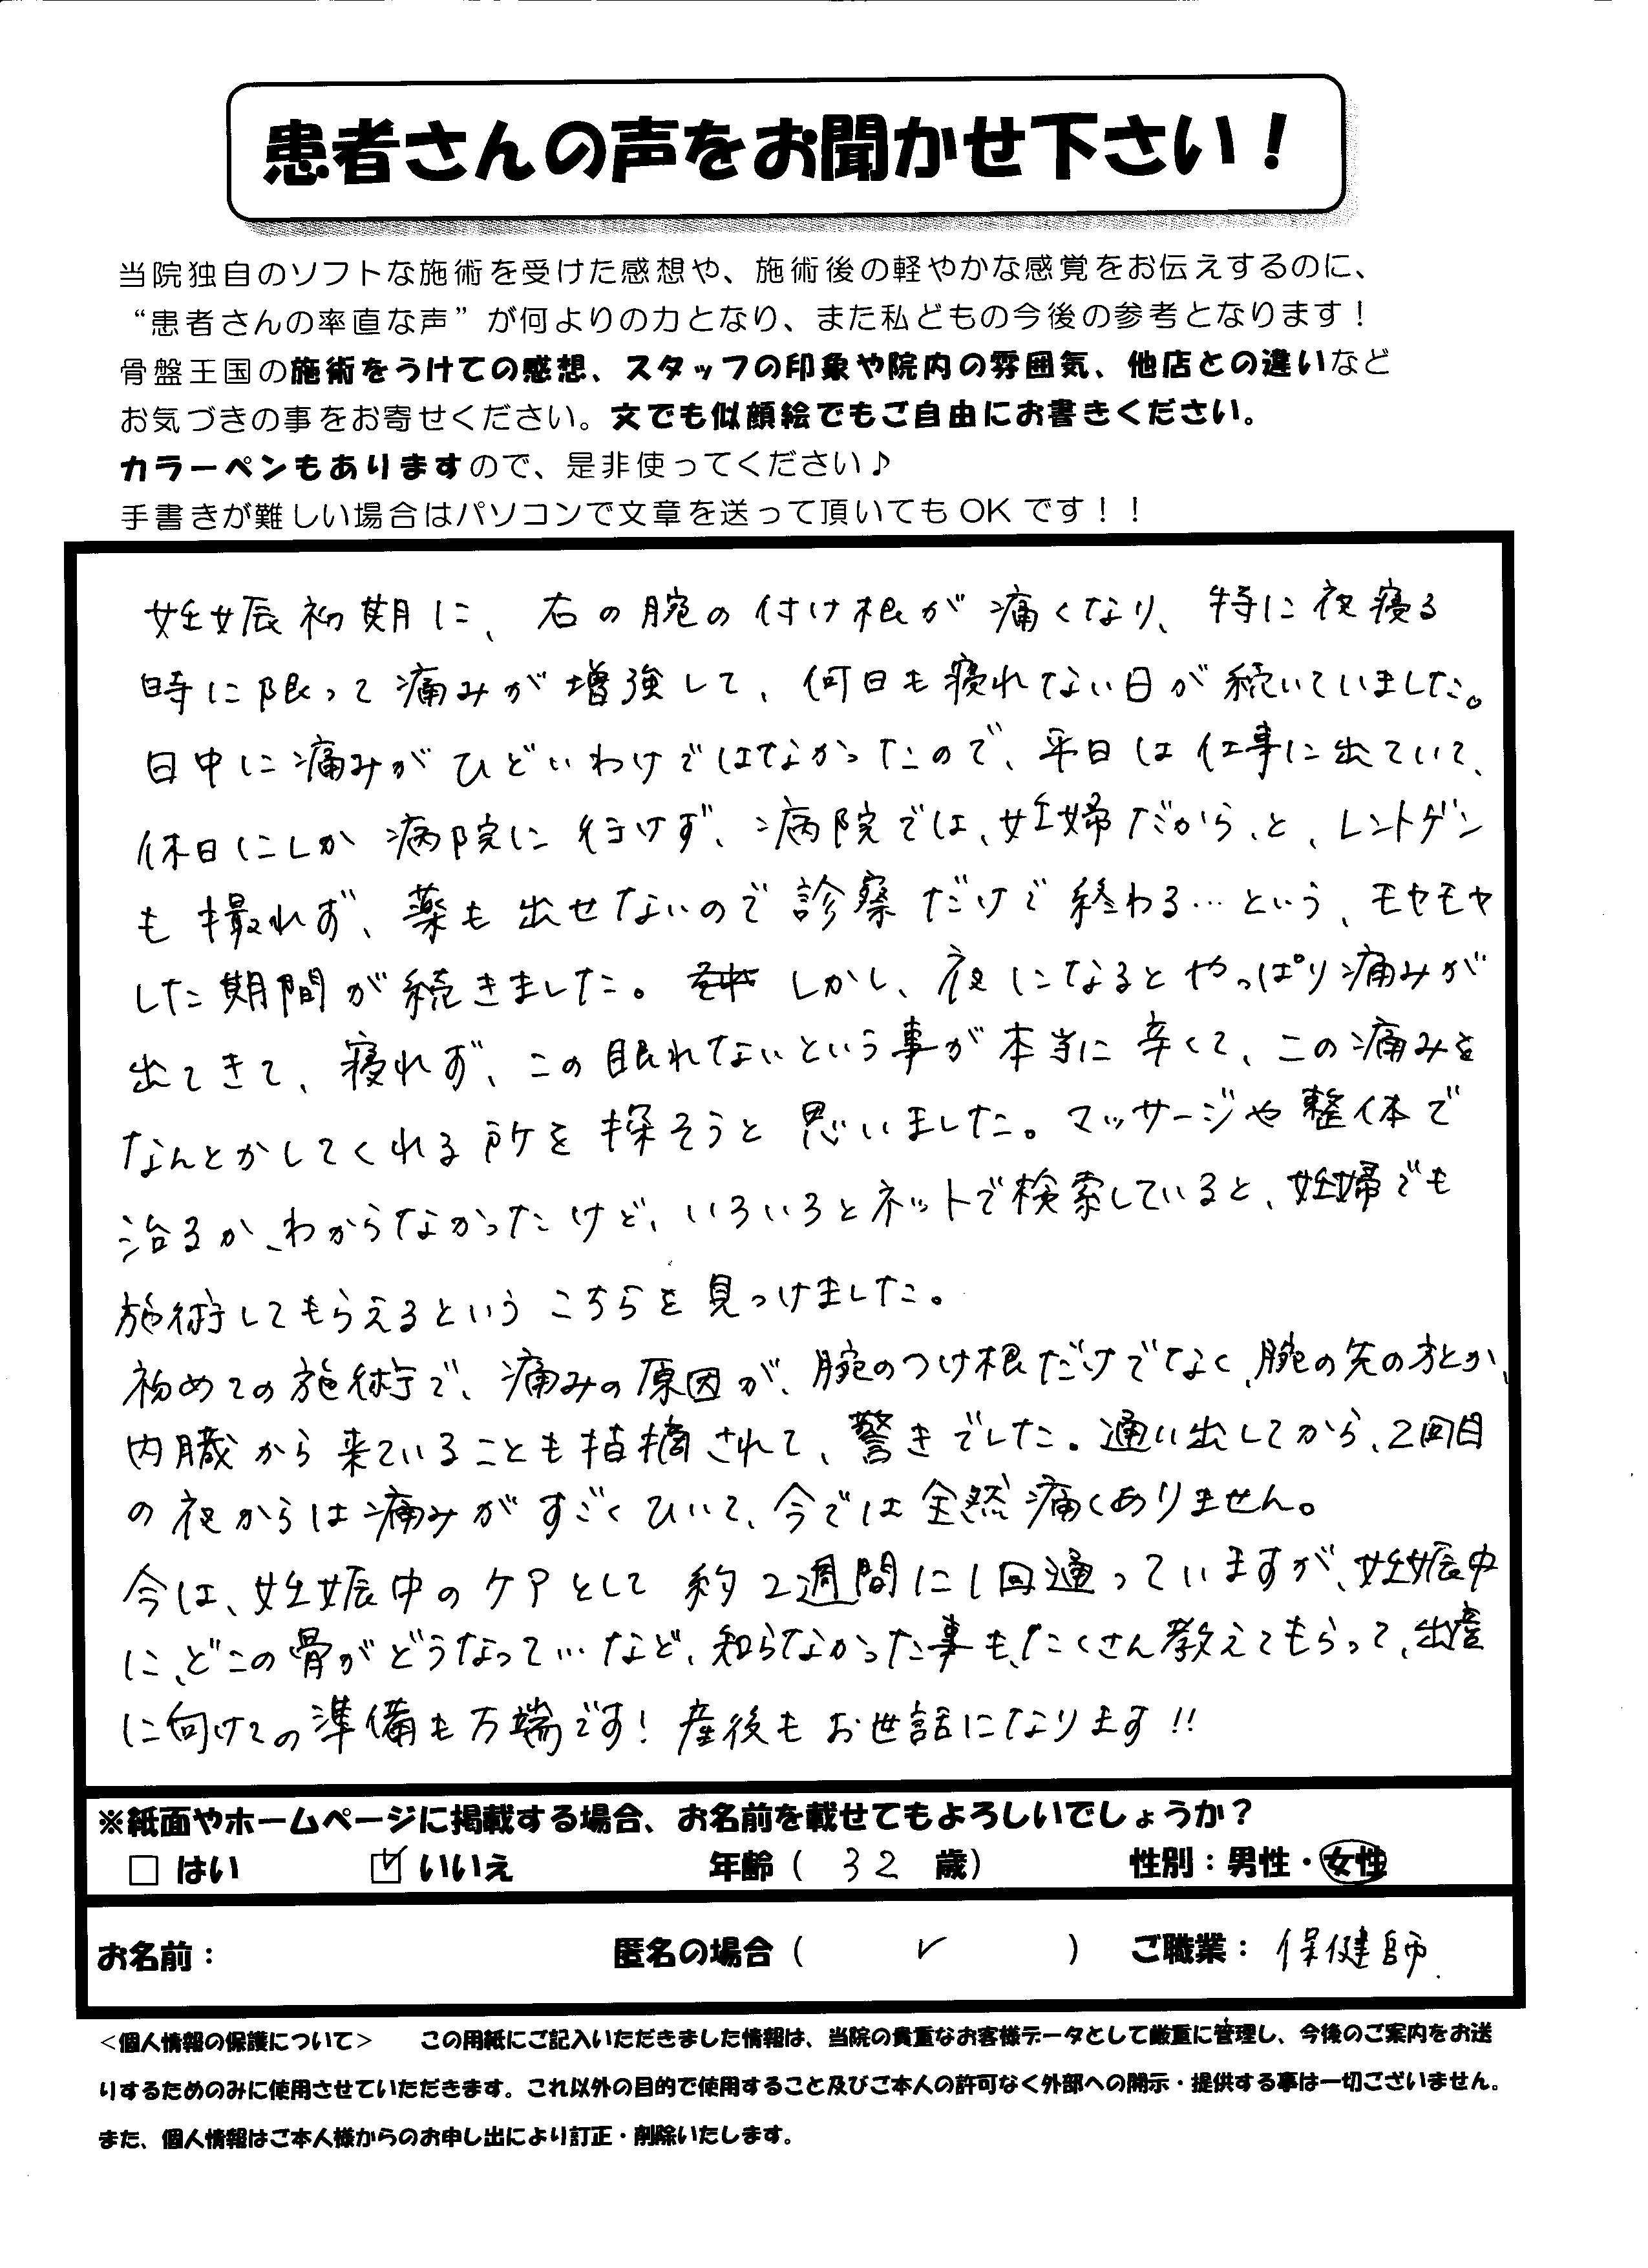 患者さんの声をお聞かせ下さい！
当院独自のソフトな施術を受けた感想や、施術後の軽やかな感覚をお伝えするのに、
“患者さんの率直な声”が何よりの力となり、また私どもの今後の参考となります！
骨盤王国の施術をうけての感想、スタッフの印象や院内の雰囲気、他店との違いなど
お気づきの事をお寄せください。文でも似顔絵でもご自由にお書きください。
カラーペンもありますので、是非使ってください♪
手書きが難しい場合はパソコンで文章を送って頂いてもOKです！！
妊娠初期に、右の腕の付け根が痛くなり、特に夜寝る
時に限って痛みが増強して、何日も寝れない日が続いていました。
日中に痛みがひどいわけではなかったので、平日は仕事に出ていて、
休日にしか病院に行けず、病院では、妊婦だから、と、レントゲン
も撮れず、薬も出せないので診察だけで終わる…という、モヤモヤ
した期間が続きました。しかし、夜になるとやっぱり痛みが
出てきて、寝れず、この眠れないという事が本当に辛くて、この痛みを
なんとかしてくれる所を探そうと思いました。マッサージや整体で
治るか、わからなかったけど、いろいろとネットで検索していると、妊婦でも
施術してもらえるというこちらを見つけました。
初めての施術で、痛みの原因が、腕のつけ根だけでなく、腕の先の方とか、
内臓から来ていることも指摘されて、驚きでした。通い出してから、2回目
の夜からは痛みがすごくひいて、今では全然痛くありません。
今は、妊娠中のケアとして約2週間に1回通っていますが、妊娠中
に、どこの骨がどうなって…など、知らなかった事も、たくさん教えてもらって、出産
に向けての準備も万端です！産後もお世話になります!!
※紙面やホームページに掲載する場合、お名前を載せてもよろしいでしょうか？
□ はい ☑ いいえ 年齢（ 32 歳） 性別：男性・女性
お名前： 匿名の場合（ ✓ ） ご職業：保健師.
＜個人情報の保護について＞ この用紙にご記入いただきました情報は、当院の貴重なお客様データとして厳重に管理し、今後のご案内をお送
りするためのみに使用させていただきます。これ以外の目的で使用すること及びご本人の許可なく外部への開示・提供する事は一切ございません。
また、個人情報はご本人様からのお申し出により訂正・削除いたします。